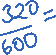 320 =
600